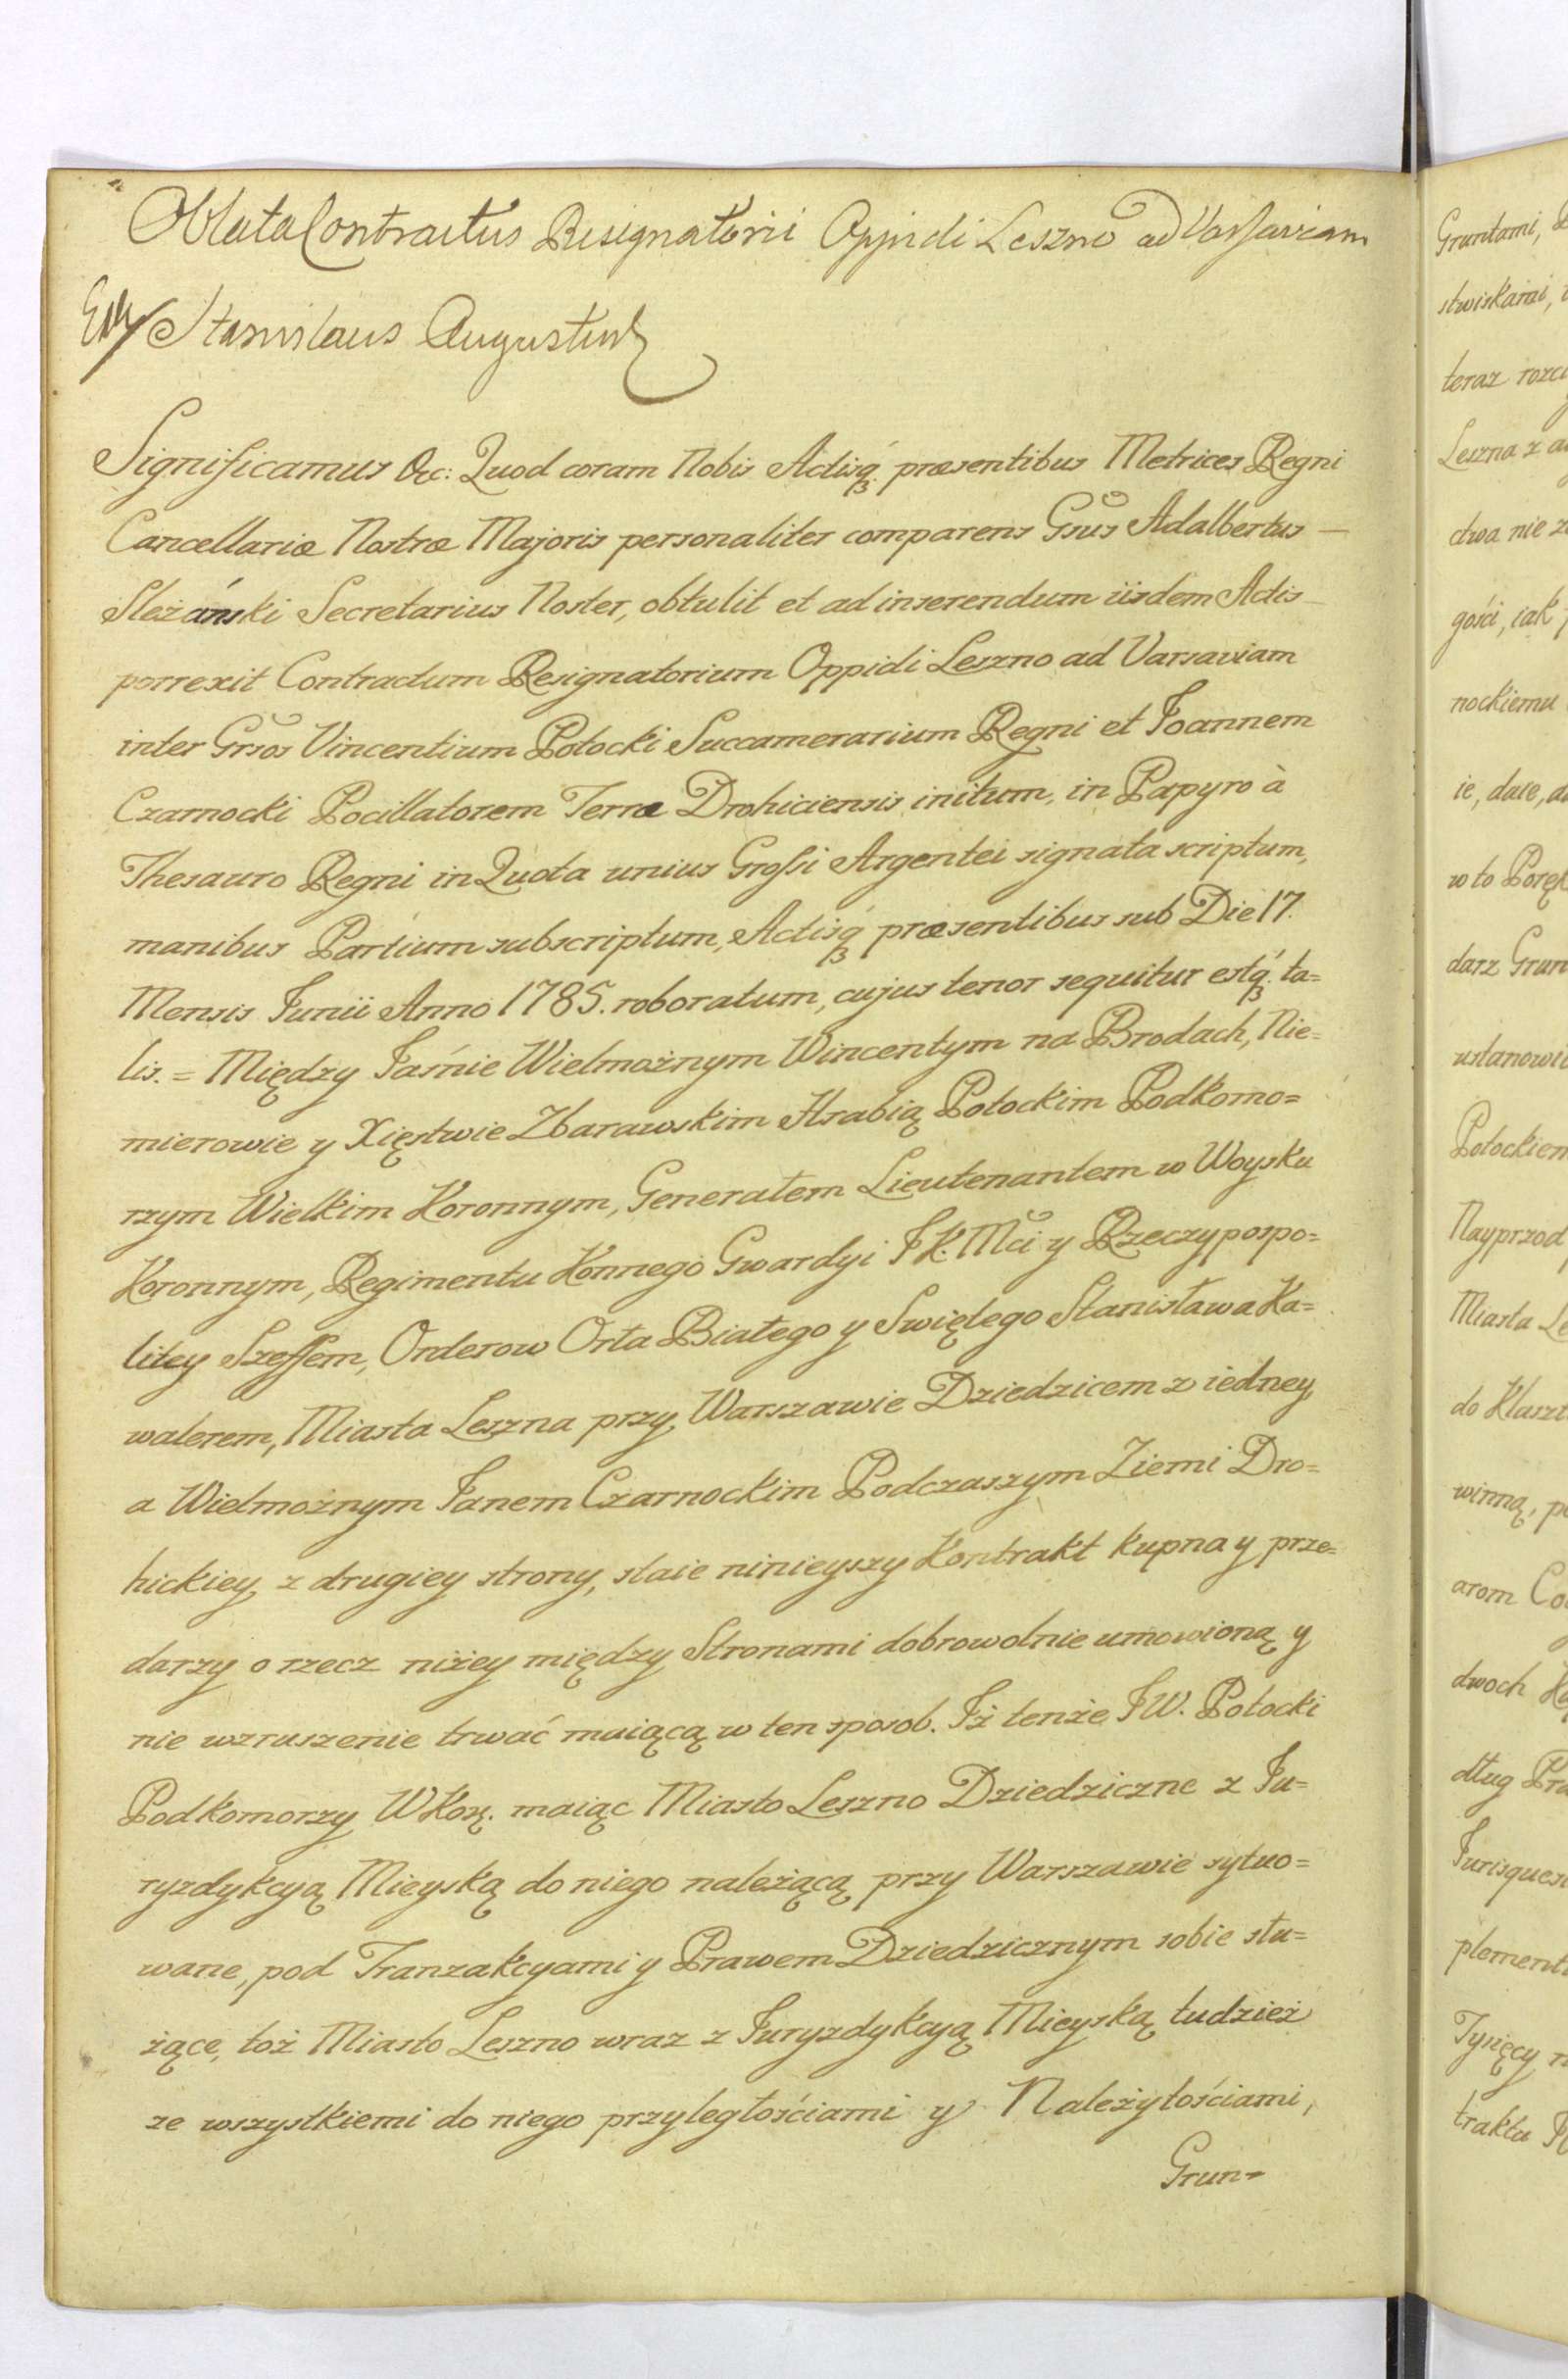 Oblata Contractus Resignatorii Oppidi Leszno ad Varsaviam
Stanislaus Augustus
Significamus &c: Quod coram Nobis Actisq́ꝫ præsentibus Metrices Regni
Cancellariæ Nostræ Majoris personaliter comparens Gsũs Adalbertus —
Sleżański Secretarius Noster, obtulit et ad inserendum iisdem Actis
porrexit Contractum Resignatorium Oppidi Leszno ad Varsaviam
inter Grsõs Vincentium Potocki Succamerarium Regni et Joannem
Czarnocki Pocillatorem Terræ Drohiciensis initum, in Papyro à
Thesauro Regni in Quota unius Grossi Argentei signata scriptum,
manibus Partium subscriptum, Actisq́ꝫ præsentibus sub Die 17.
Mensis Junii Anno 1785. roboratum, cujus tenor sequitur estq́ꝫ ta=
lis. = Między Jaśnie Wielmożnym Wincentym na Brodach, Nie=
mierowie y Xięstwie Zbarawskim Hrabią Potockim Podkomo=
rzym Wielkim Koronnym, Generałem Lieutenantem w Woysku
Koronnym, Regimentu Konnego Gwardyi J K. Mci y Rzeczypospo=
litey Szeffem, Orderow Orła Białego y Swiętego Stanisława Ka=
walerem, Miasta Leszna przy Warszawie Dziedzicem z iedney,
a Wielmożnym Janem Czarnockim Podczaszym Ziemi Dro=
hickiey z drugiey strony, staie ninieyszy Kontrakt kupna y prze=
darzy o rzecz niżey między Stronami dobrowolnie umowioną y
nie wzruszenie trwać maiącą w ten sposob. Iż tenże JW. Potocki
Podkomorzy W Kor. maiąc Miasto Leszno Dziedziczne z Ju=
ryzdykcyą Mieyską do niego należącą przy Warszawie sytuo=
wane, pod Tranzakcyami y Prawem Dziedzicznym sobie słu=
żące, toż Miasto Leszno wraz z Juryzdykcyą Mieyską tudzież
ze wszystkiemi do niego przyległościami y Należytościami,
Grun=
Gruntami,
stwiskami,
teraz
Leszna z
dwa nie
gości, iak
nockiemu
ie, daie,
w to
darz
Nayprzod
Miasta
do
winną,
arom
dwoch
dług
Tysięcy